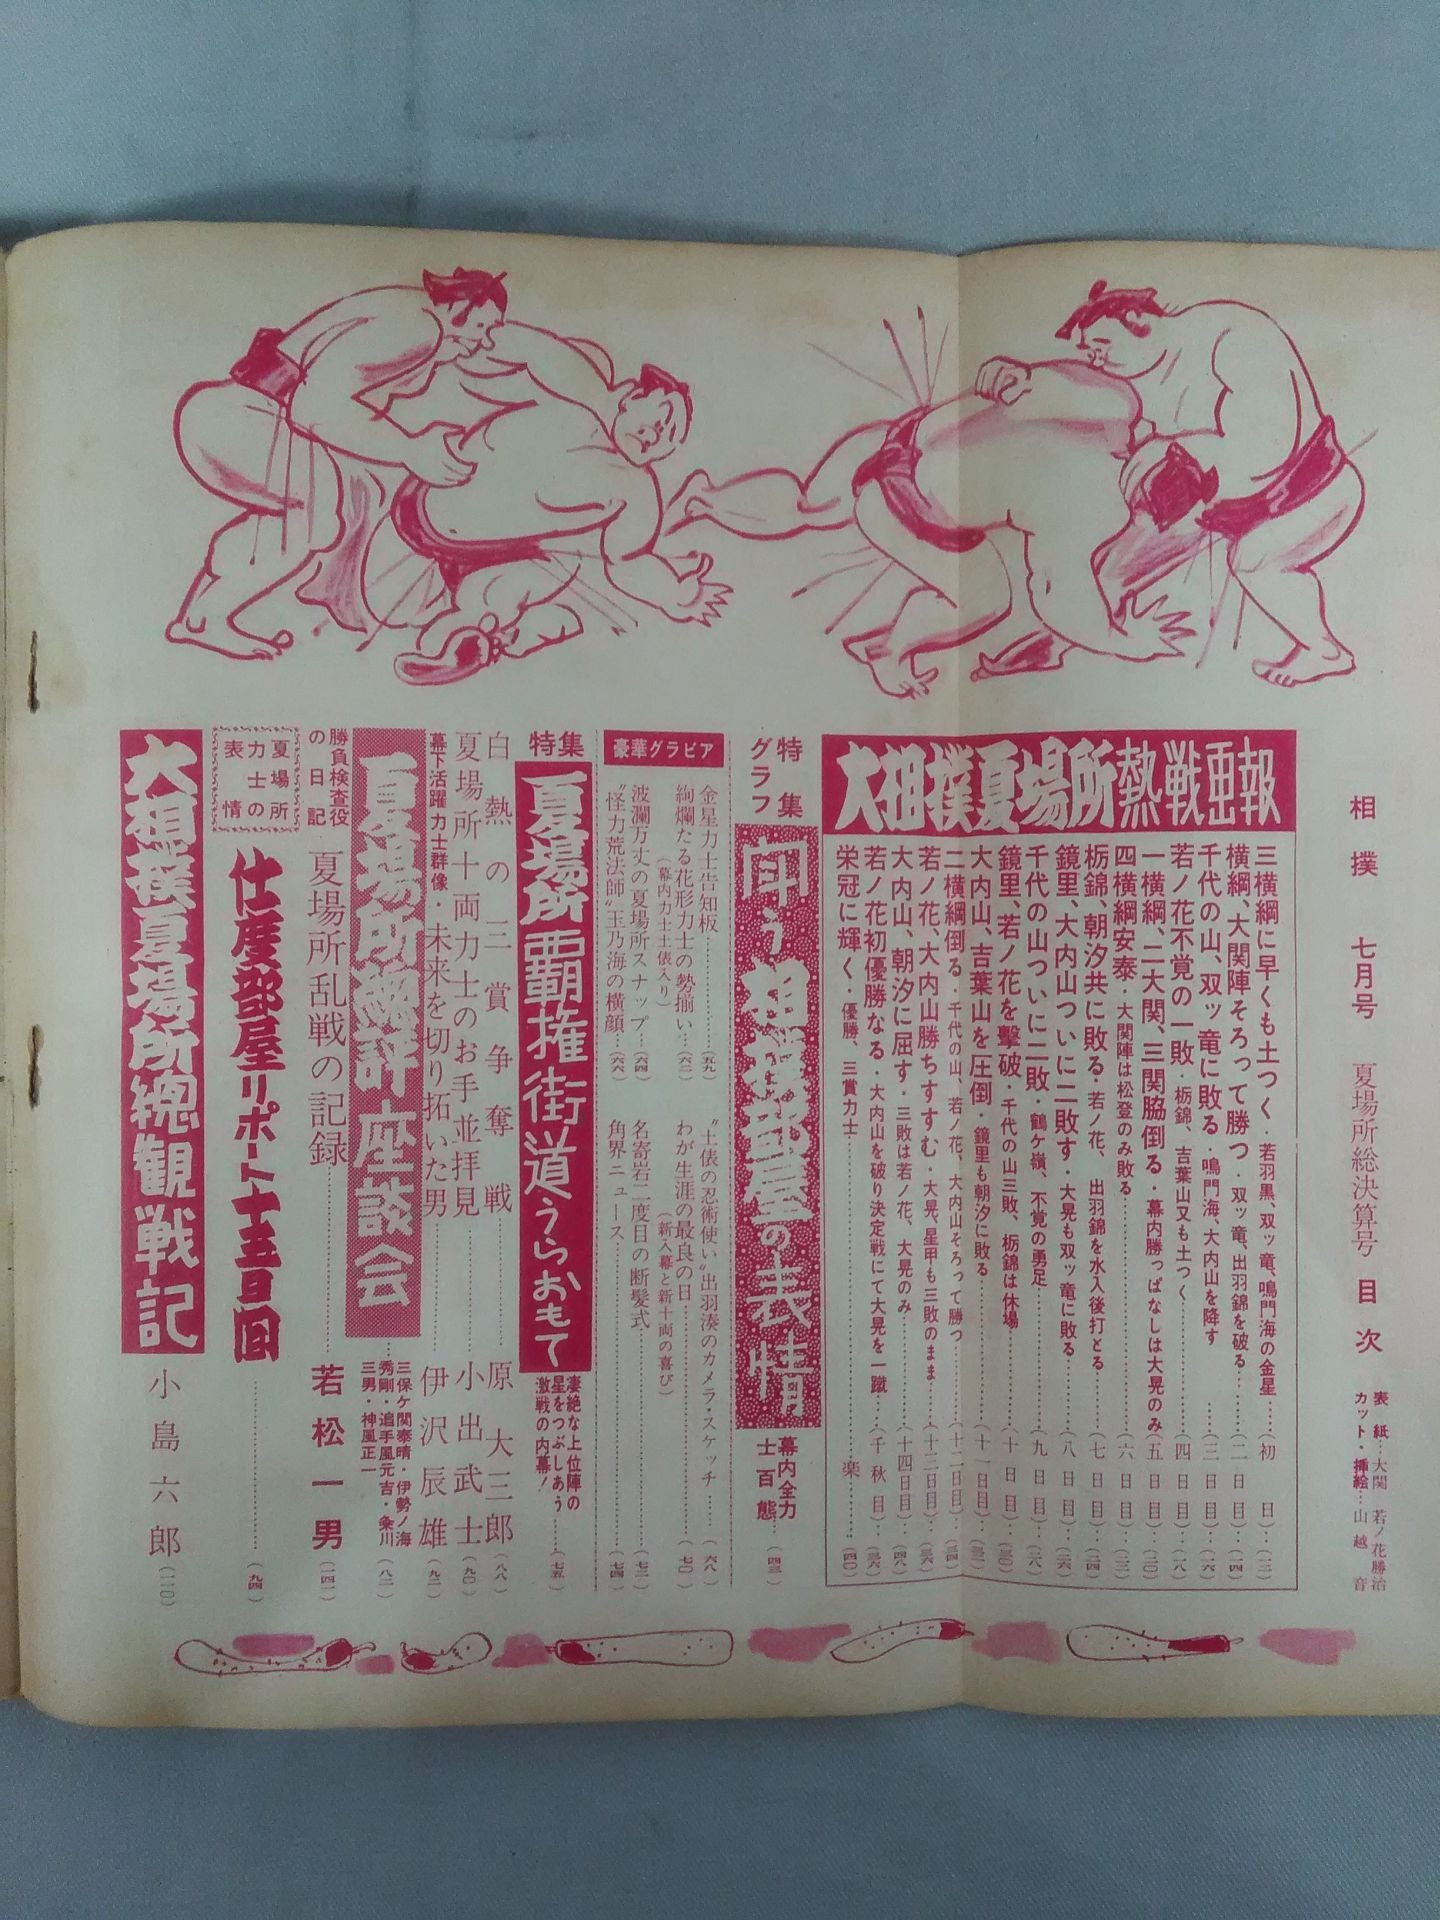 相撲 七月号 夏場所総決算号 目次
表紙…大関 若ノ花勝治
カット・挿絵…山越 音
大相撲夏場所熱戦画報
三横綱に早くも土つく・若羽黒、双ッ竜、鳴門海の金星……(初日)…(一二)
横綱、大関陣そろって勝つ・双ッ竜、出羽錦を破る……(二日目)…(一四)
千代の山、双ッ竜に敗る・鳴門海、大内山を降す……(三日目)…(一六)
若ノ花不覚の一敗・栃錦、吉葉山又も土つく……(四日目)…(一八)
一横綱、二大関、三関脇倒る・幕内勝っぱなしは大晃のみ(五日目)…(二〇)
四横綱安泰・大関陣は松登のみ敗る……(六日目)…(二二)
栃錦、朝汐共に敗る・若ノ花、出羽錦を水入後打とる……(七日目)…(二四)
鏡里、大内山ついに二敗す・大晃も双ッ竜に敗る……(八日目)…(二六)
千代の山ついに二敗・鶴ケ嶺、不覚の勇足……(九日目)…(二八)
鏡里、若ノ花を撃破・千代の山三敗、栃錦は休場……(十日目)…(三〇)
大内山、吉葉山を圧倒・鏡里も朝汐に敗る……(十一日目)…(三二)
二横綱倒る・千代の山、若ノ花、大内山そろって勝つ……(十二日目)…(三四)
若ノ花、大内山勝ちすすむ・大晃、星甲も三敗のまま……(十三日目)…(三六)
大内山、朝汐に屈す・三敗は若ノ花、大晃のみ……(十四日目)…(三八)
若ノ花初優勝なる・大内山を破り決定戦にて大晃を一蹴……(千秋楽)
栄冠に輝く・優勝、三賞力士……(四〇)
特集グラフ
闘う相撲部屋の表情
幕内全力士百態……(四三)
豪華グラビア
金星力士告知板……(五九)
絢爛たる花形力士の勢揃い…(六二)
(幕内力士土俵入り)
波瀾万丈の夏場所スナップ…(六四)
"怪力荒法師"玉乃海の横顔…(六六)
"土俵の忍術使い"出羽湊のカメラ・スケッチ……(六八)
わが生涯の最良の日……(七〇)
(新入幕と新十両の喜び)
名寄岩二度目の断髪式……(七二)
角界ニュース……(七四)
特集
夏場所覇権街道うらおもて
凄絶な上位陣の星をつぶしあう激戦の内幕!……(七五)
白熱の三賞争奪戦……原大三郎(八八)
夏場所十両力士のお手並拝見……小出武士(九〇)
幕下活躍力士群像・未来を切り拓いた男……伊沢辰雄(九二)
夏場所総評座談会
三保ケ関泰晴・伊勢ノ海
秀剛・追手風元吉・粂川
三男・神風正一……(八二)
勝負検査役の日記
夏場所乱戦の記録……若松一男(一四一)
夏場所力士の表情
仕度部屋リポート十五日間……(九四)
大相撲夏場所総観戦記 小島六郎(一一〇)